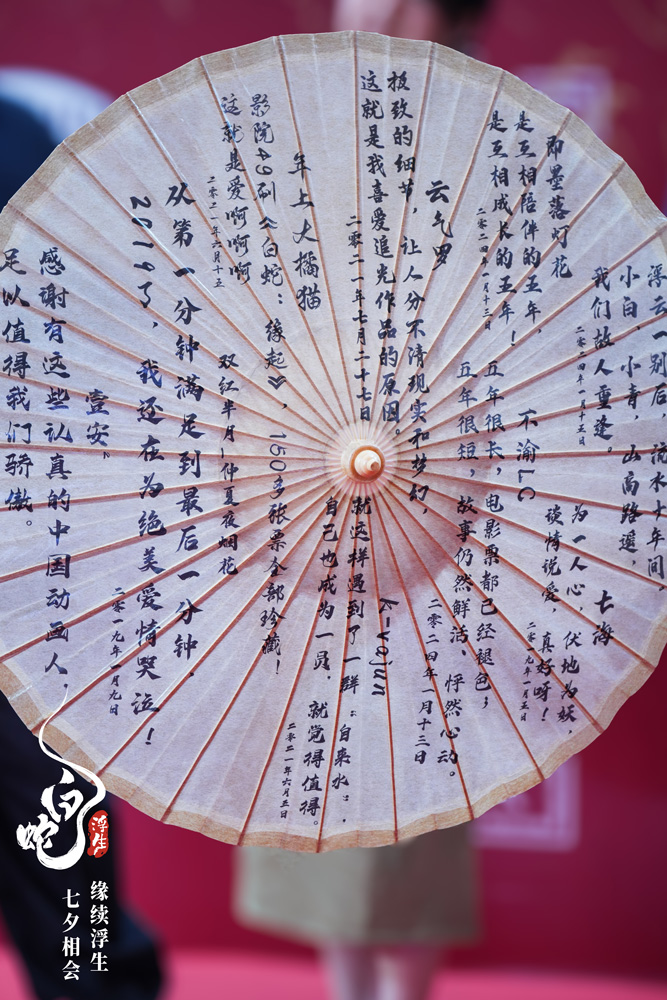 薄云一别后，流水十年间
小白、小青，山高路遥，
我们故人重逢。
二零二四年一月十五日
七海
为一人心，伏地为妖，
谈情说爱，真好呀！
二零一九年一月五日
即墨落灯花
是互相陪伴的五年，
是互相成长的五年！
二零二四年一月十三日
不渝LC
五年很长，电影票都已经褪色；
五年很短，故事仍然鲜活、怦然心动。
二零二四年一月十三日
云乞罗
极致的细节，让人分不清现实和梦幻，
这就是我喜爱追光作品的原因。
二零二一年七月二十七日
k-vojun
就这样遇到了一群“自来水”，
自己也成为一员，就觉得值得。
二零二一年六月五日
年上大橘猫
影院49刷《白蛇：缘起》，150多张票全部珍藏！
这就是爱啊啊啊
二零二一年六月十五
双红半月，仲夏夜烟花
从第一分钟满足到最后一分钟，
2019了，我还在为绝美爱情哭泣！
二零一九年一月九日
壹安²
感谢有这些认真的中国动画人，
足以值得我们骄傲。
白蛇
浮生
缘续浮生
七夕相会